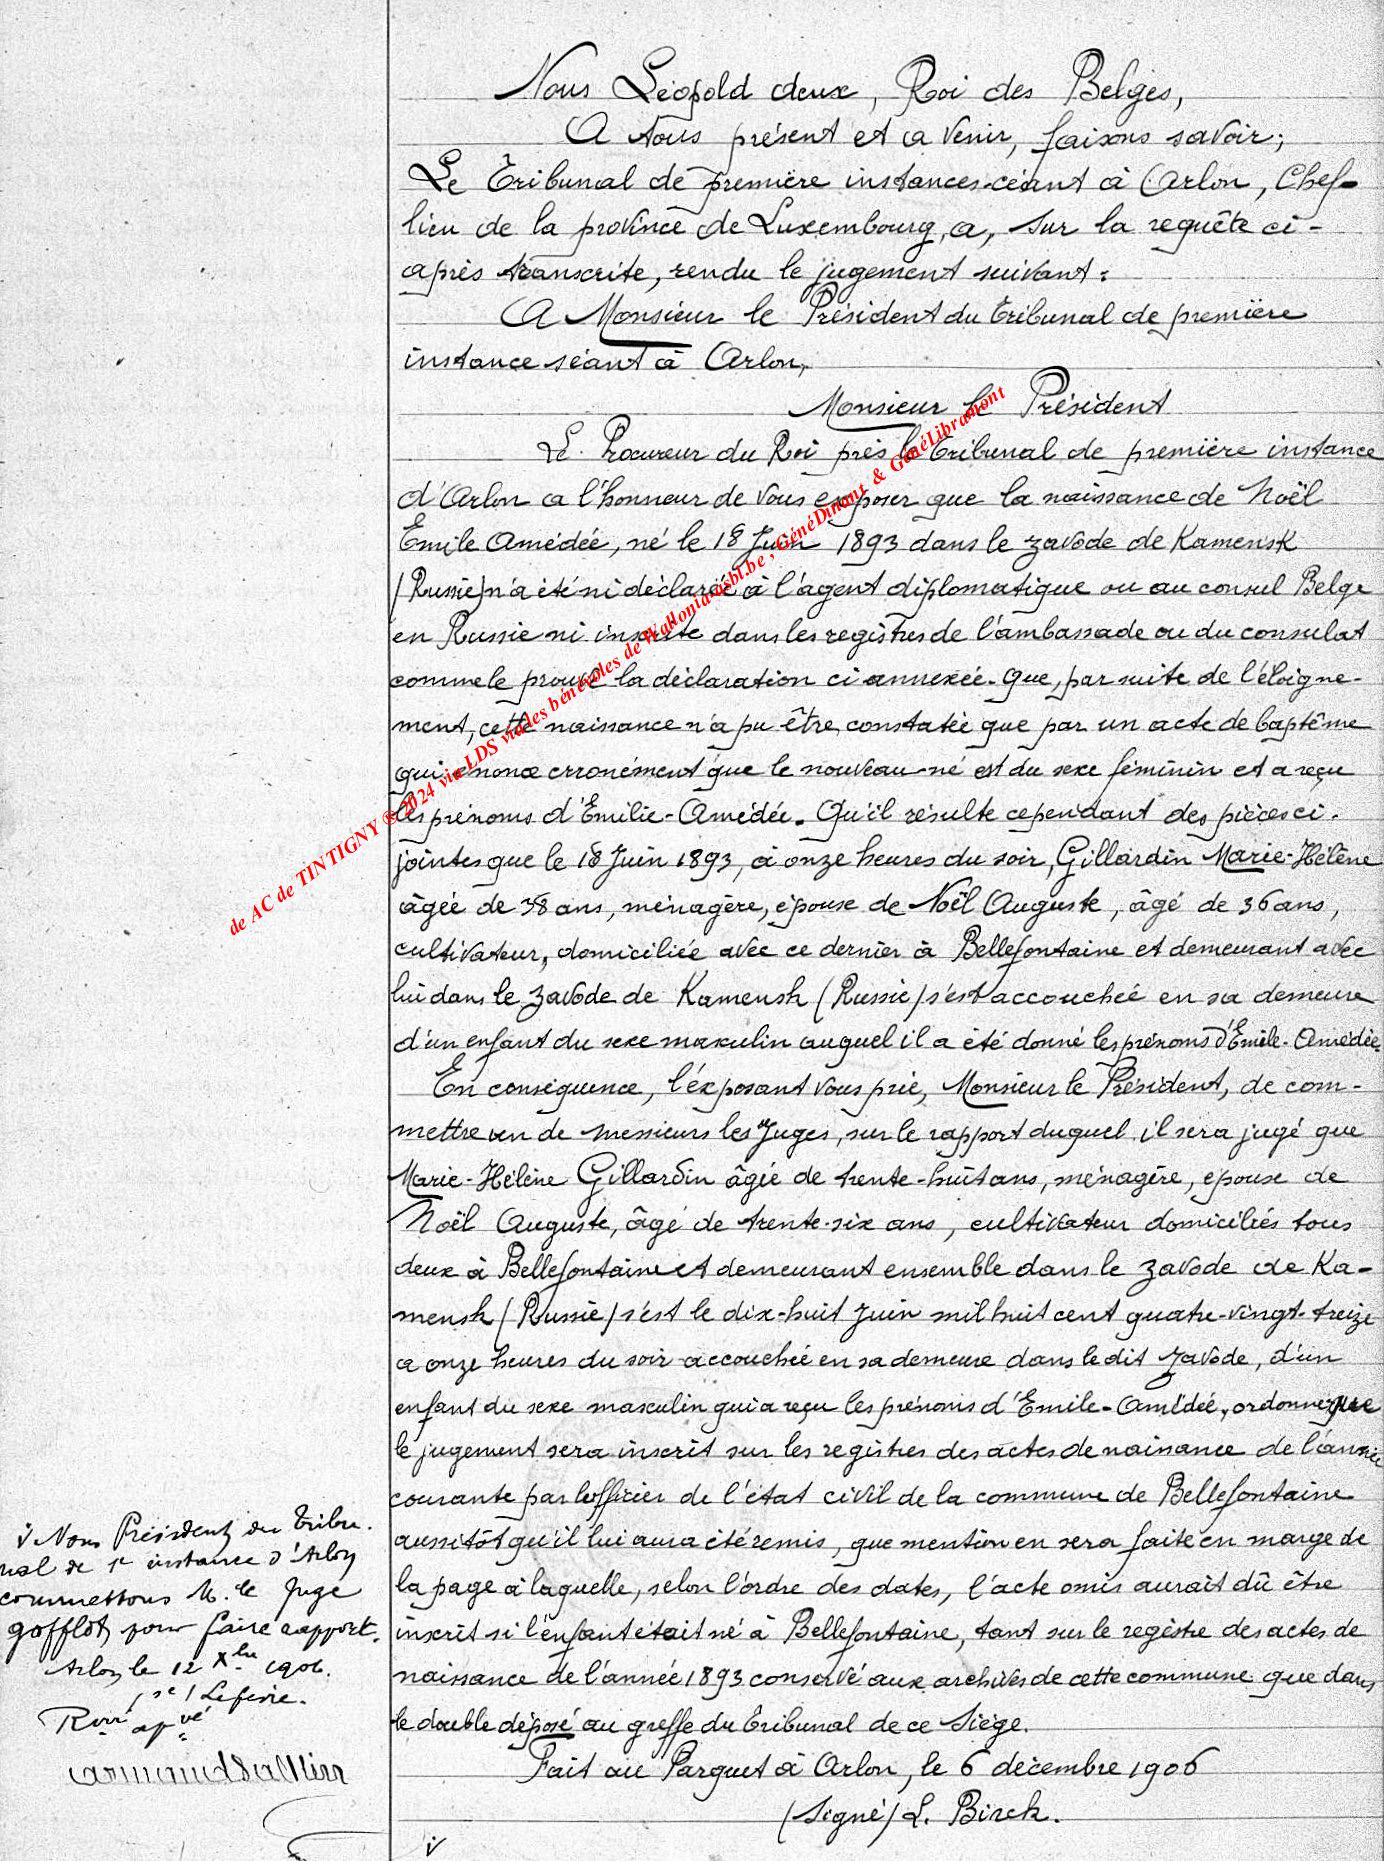 Nous Léopold deux, Roi des Belges,
A tous présent et a venir, faisons savoir;
Le Tribunal de première instances céant à Arlon, Chef-
lieu de la province de Luxembourg, a, sur la requête ci-
après transcrite, rendu le jugement suivant:
A Monsieur le Président du tribunal de première
instance séant à Arlon,
Monsieur le Président
Le Procureur du Roi près le tribunal de première instance
d'Arlon a l'honneur de vous exposer que la naissance de Noël
Emile Amédée, né le 18 Juin 1893 dans le zavode de Kamensk
(Russie) n'a été ni déclarée à l'agent diplomatique ou au consul Belge
en Russie ni inscrite dans les registres de l'ambassade ou du consulat
comme le prouve la déclaration ci annexée. Que, par suite de l'éloigne-
ment, cette naissance n'a pu être constatée que par un acte de baptême
qui énonce erronément que le nouveau-né est du sexe féminin et a reçu
les prénoms d'Emilie-Amédée. Qu'il résulte cependant des pièces ci-
jointes que le 18 Juin 1893, à onze heures du soir, Gillardin Marie-Hélène
âgée de 38 ans, ménagère, épouse de Noël Auguste, âgé de 36 ans,
cultivateur, domiciliée avec ce dernier à Bellefontaine et demeurant avec
lui dans le zavode de Kamensk (Russie) s'est accouchée en sa demeure
d'un enfant du sexe masculin auquel il a été donné les prénoms d'Emile-Amédée.
En conséquence, l'exposant vous prie, Monsieur le Président, de com-
mettre un de messieurs les Juges, sur le rapport duquel il sera jugé que
Marie-Hélène Gillardin âgée de trente-huit ans, ménagère, épouse de
Noël Auguste, âgé de trente-six ans, cultivateur domiciliés tous
deux à Bellefontaine et demeurant ensemble dans le zavode de Ka-
mensk (Russie) s'est le dix-huit Juin mil huit cent quatre-vingt-treize
a onze heures du soir accouchée en sa demeure dans le dit zavode, d'un
enfant du sexe masculin qui a reçu les prénoms d'Emile-Amédée, ordonner que
le jugement sera inscrit sur les registres des actes de naissance de l'année
courante par l'officier de l'état civil de la commune de Bellefontaine
aussitôt qu'il lui aura été remis, que mention en sera faite en marge de
la page à laquelle, selon l'ordre des dates, l'acte omis aurait dû être
inscrit si l'enfant était né à Bellefontaine, tant sur le registre des actes de
naissance de l'année 1893 conservé aux archives de cette commune que dans
le double déposé au greffe du tribunal de ce Siège.
Fait au Parquet à Arlon, le 6 décembre 1906
(Signé) L. Birck.
v
v Nous Président du Tribu-
nal de 1e instance d'Arlon
commettons M. le Juge
Gofflot pour faire rapport.
Arlon, le 12 Xbre 1906.
(sé) Lefèvre.
apvé
de AC de TINTIGNY ® 2024 via LDS via les bénévoles de Wallonia-asbl.be ; GénéDinant & GénéLibramont